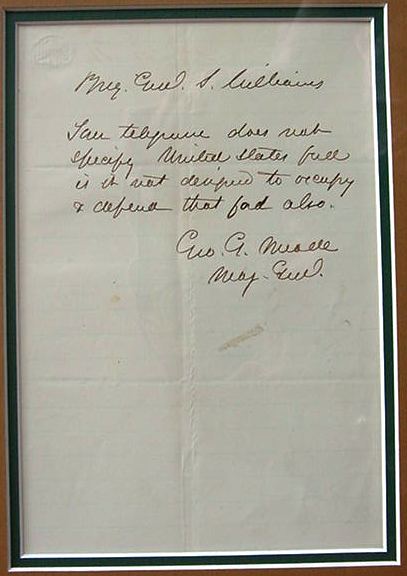 Brig. Genl. S. Williams
telegram does not
specify United States ford
is it not designed to occupy
& defend that ford also.
Geo. G. Meade
Maj. Genl.